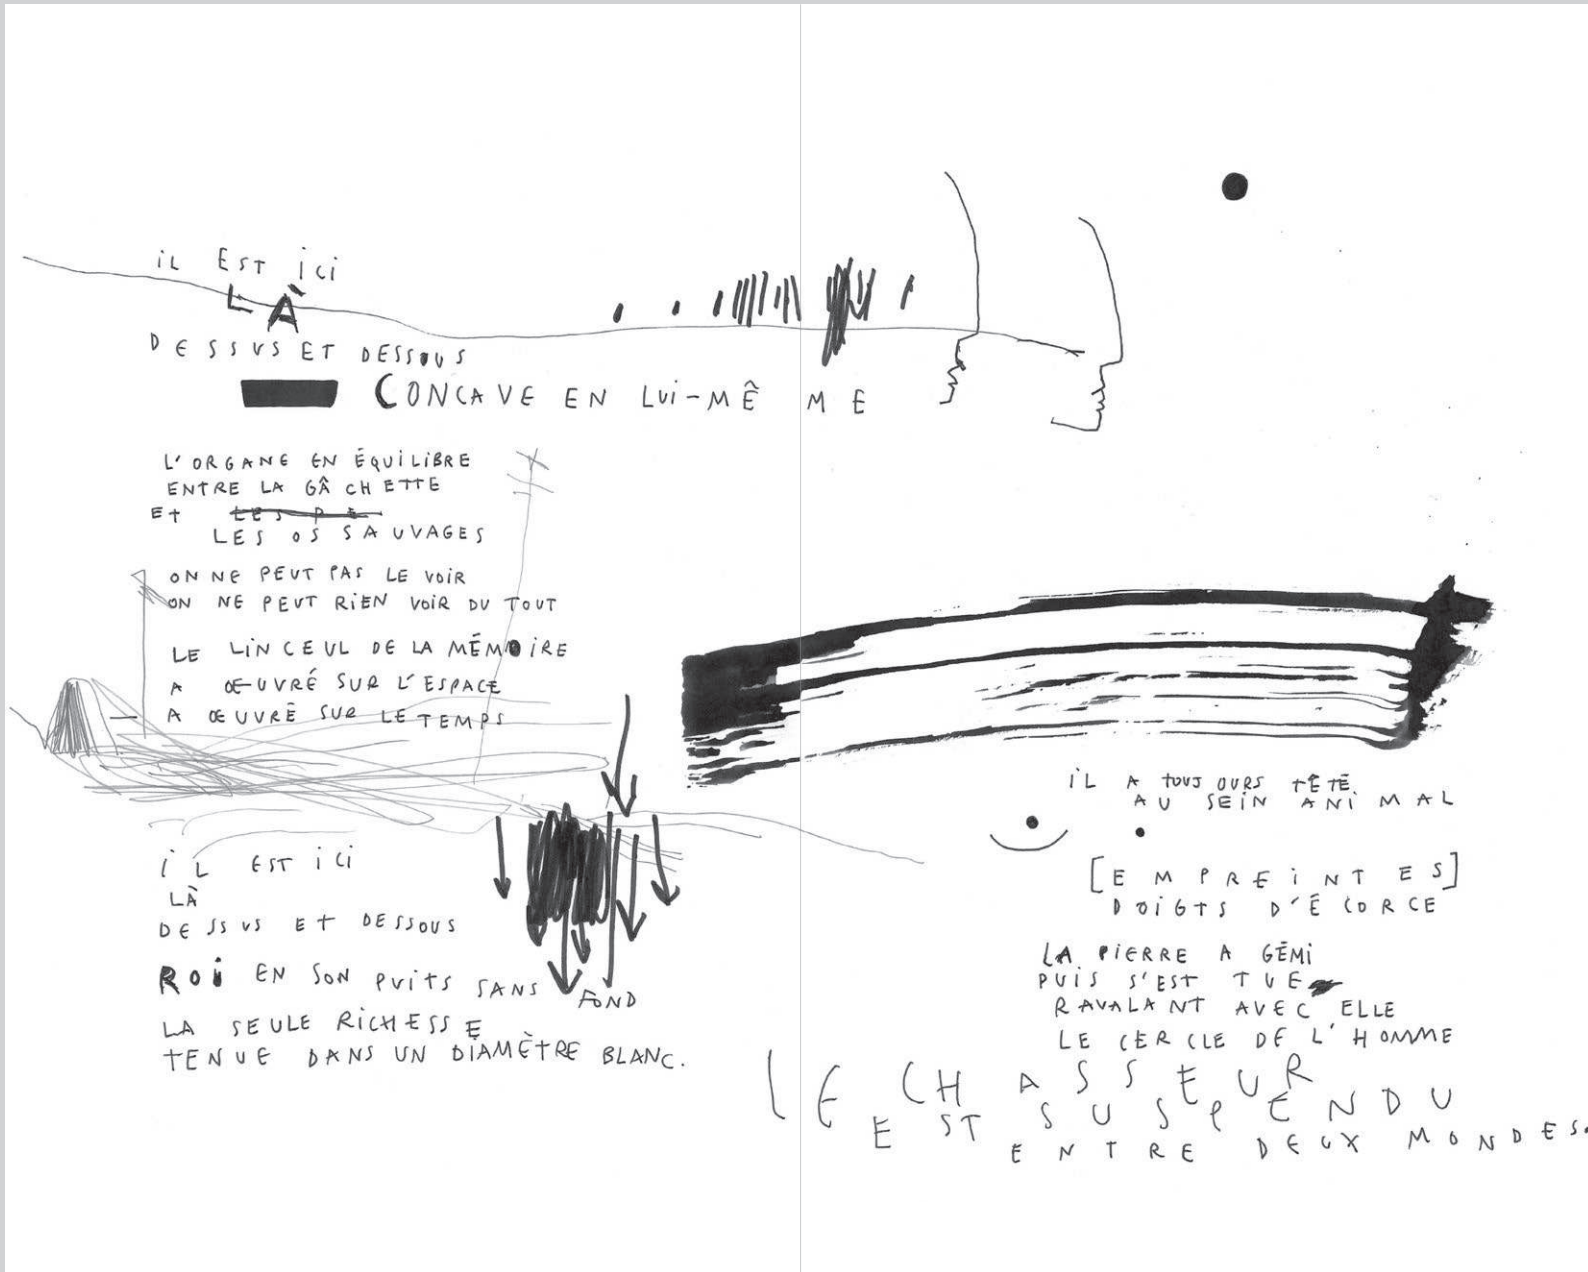 iL EST iCi
LÀ
DESSUS ET DESSOUS
CONCAVE EN LUi-MÊME
L'ORGANE EN ÉQUiLiBRE
ENTRE LA GÂCHETTE
ET
LES OS SAUVAGES
ON NE PEUT PAS LE VOiR
ON NE PEUT RiEN VOiR DU TOUT
LE LiNCEUL DE LA MÉMOiRE
A ŒUVRÉ SUR L'ESPACE
A ŒUVRÉ SUR LE TEMPS
iL EST iCi
LÀ
DESSUS ET DESSOUS
ROi EN SON PUiTS SANS FOND
LA SEULE RiCHESSE
TENUE DANS UN DiAMÈTRE BLANC.
iL A TOUJOURS TÉTÉ
AU SEiN ANiMAL
[EMPREiNTES]
DOiGTS D'ÉCORCE
LA PiERRE A GÉMi
PUiS S'EST TUE
RAVALANT AVEC ELLE
LE CERCLE DE L'HOMME
LE CHASSEUR
EST SUSPENDU
ENTRE DEUX MONDES.